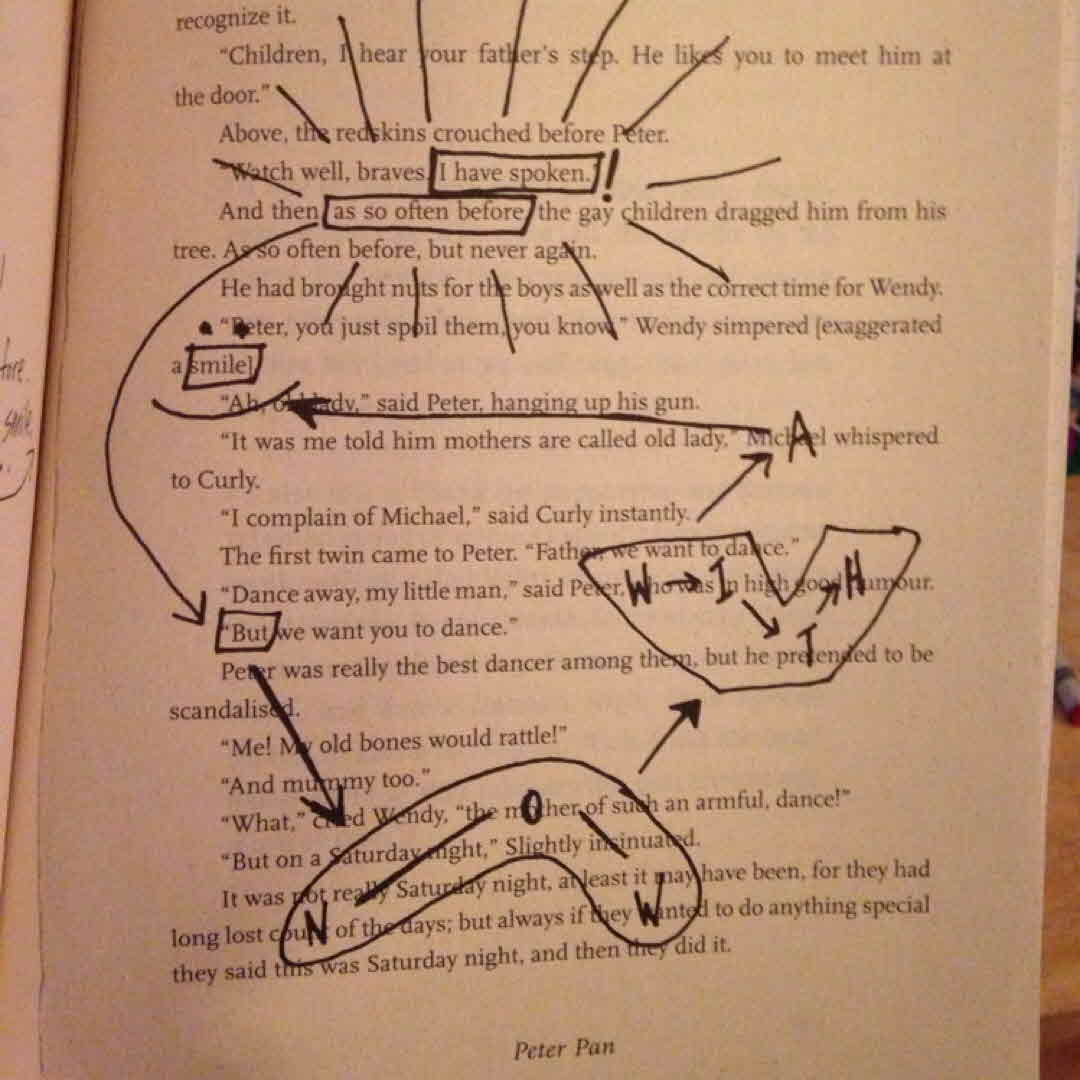 recognize it.
“Children, I hear your father’s step. He likes you to meet him at
the door.”
Above, the redskins crouched before Peter.
“Watch well, braves. I have spoken.” !
And then, as so often before, the gay children dragged him from his
tree. As so often before, but never again.
He had brought nuts for the boys as well as the correct time for Wendy.
“Peter, you just spoil them, you know,” Wendy simpered [exaggerated
a smile].
“Ah, old lady,” said Peter, hanging up his gun.
“It was me told him mothers are called old lady,” Michael whispered
A
to Curly.
“I complain of Michael,” said Curly instantly.
The first twin came to Peter. “Father, we want to dance.”
W I T H
“Dance away, my little man,” said Peter, who was in high good humour.
“But we want you to dance.”
Peter was really the best dancer among them, but he pretended to be
scandalised.
“Me! My old bones would rattle!”
“And mummy too.”
“What,” cried Wendy, “the mother of such an armful, dance!”
“But on a Saturday night,” Slightly insinuated.
It was not really Saturday night, at least it may have been, for they had
N O W
long lost count of the days; but always if they wanted to do anything special
they said this was Saturday night, and then they did it.
Peter Pan